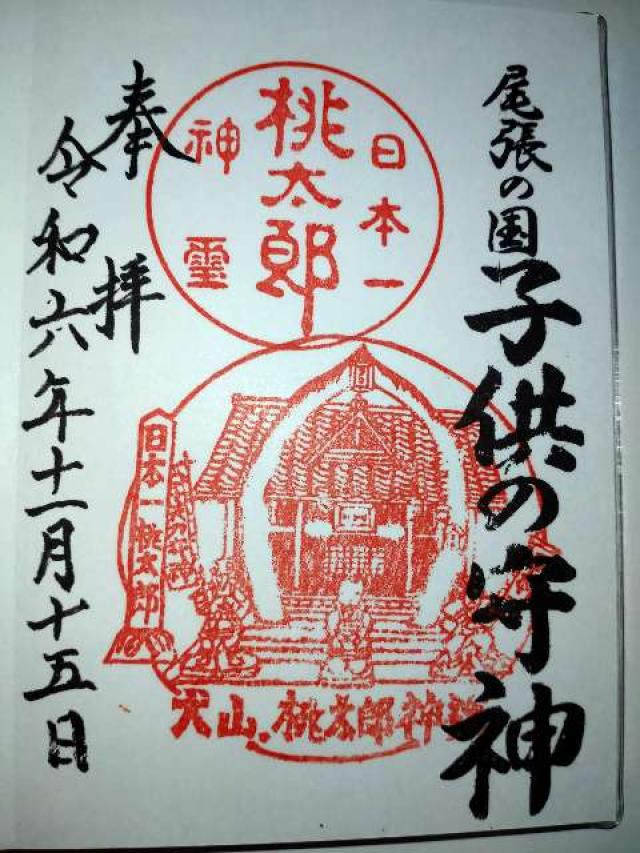 尾張の国
子供の守神
日本一
桃太郎
神霊
日本一桃太郎
犬山.桃太郎神社
奉拝
令和六年十一月十五日